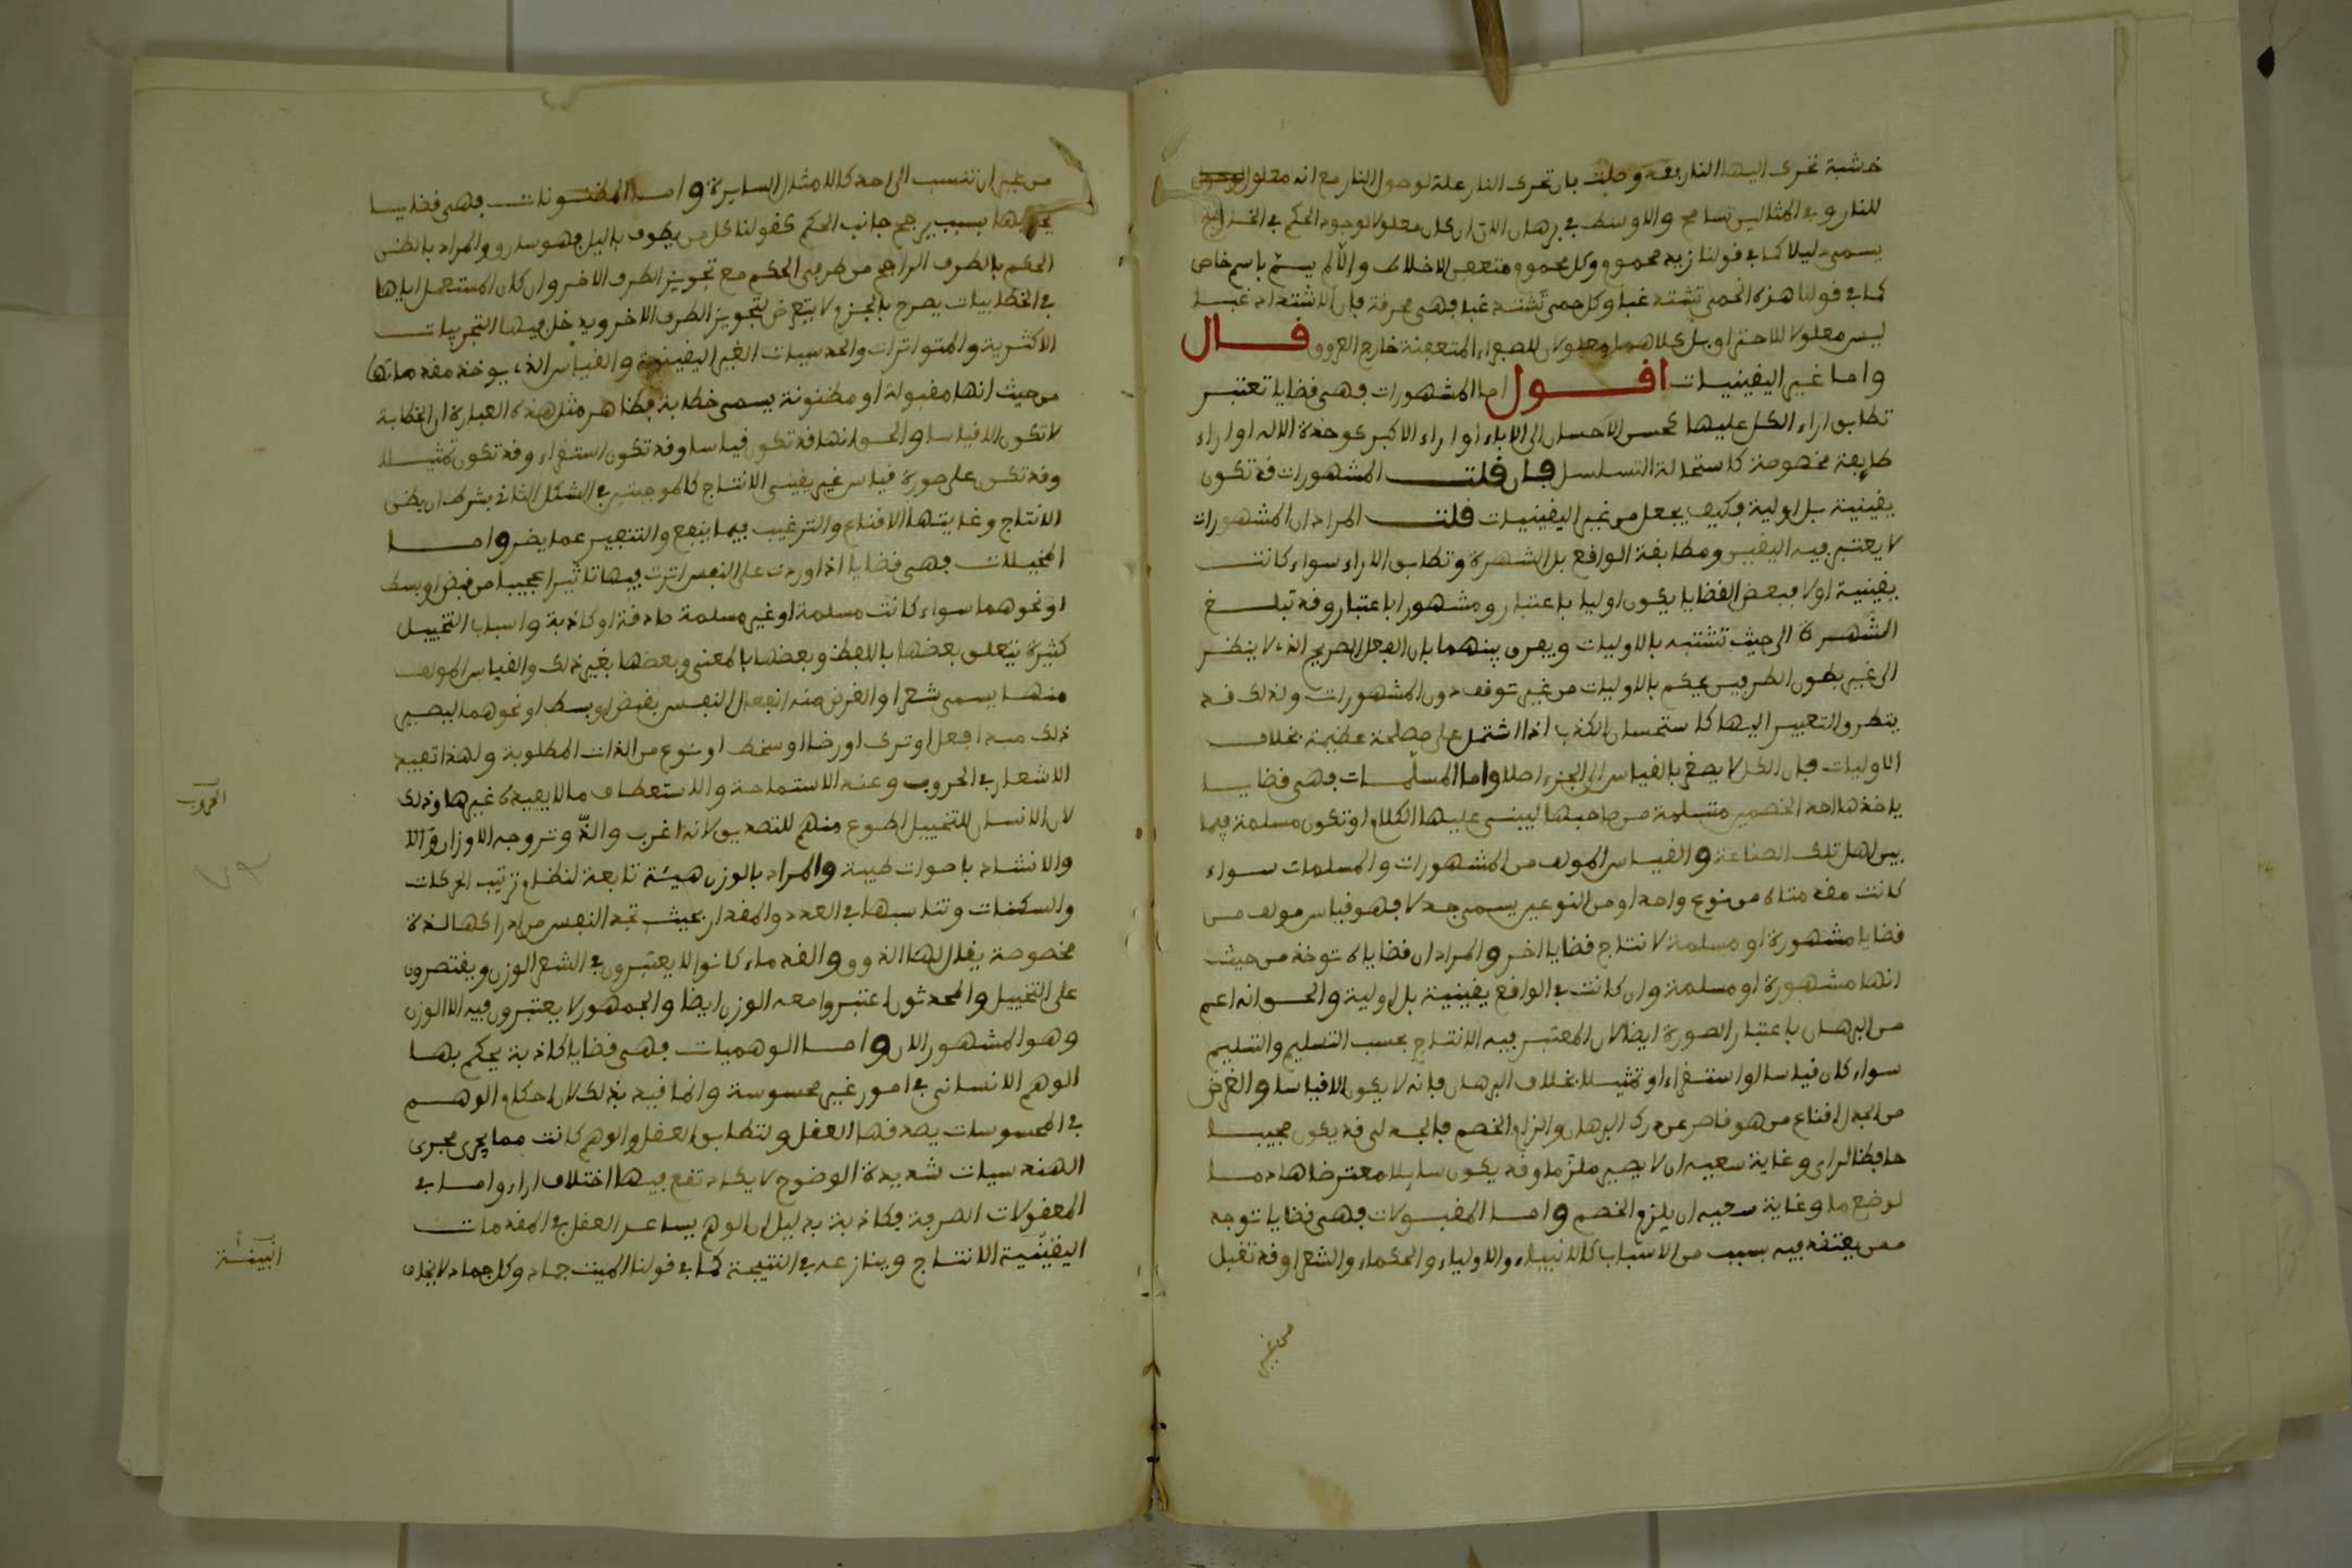 خشبة تحرك اليها النار فقد وصلت بان تحرك النار علة لوصول النار مع انه معلول
للنار و في المثالين تسامح والاوسط في برهان الان ان كان معلولا لوجود الحكم في الخارج
يسمى دليلا كما في قولنا زيد محموم وكل محموم متعفن الاخلاط والا لم يسم باسم خاص
كما في قولنا هذه الحمى تشتد غبا وكل حمى تشتد غبا فهى محرقة فان الاشتداد غبا
ليس معلولا للاحتراق بل كلاهما معلولان للصفراء المتعفنة خارج العروق قال
واما غير اليقينيات اقول اما المشهورات فهى قضايا تعتبر
تطابق اراء الكل عليها كحسن الاحسان الى الاباء او اراء الاكثر كوحدة الاله او اراء
طايفة مخصوصة كاستحالة التسلسل فان قلت المشهورات قد تكون
يقينية بل اولية فكيف يجعل من غير اليقينيات قلت المراد ان المشهورات
لا يعتبر فيه اليقين ومطابقة الواقع بل الشهرة وتطابق الاراء سواء كانت
يقينية اولا فبعض القضايا يكون اوليا باعتبار ومشهورا باعتبار وقد تبلغ
الشهرة الى حيث تشتبه بالاوليات ويفرق بينهما بان العقل الصريح الذى لا ينظر
الى غير تصور الطرفين يحكم بالاوليات من غير توقف دون المشهورات ولذلك قد
يتطرق التغيير اليها كاستحسان الكذب اذا اشتمل على مصلحة عظيمة بخلاف
الاوليات فان الكل لا يصغر بالقياس الى الجزء اصلا واما المسلمات فهى قضايا
ياخذها احد الخصمين متسلمة من صاحبها ليبنى عليها الكلام او تكون مسلمة فيما
بين اهل تلك الصناعة والقياس المولف من المشهورات والمسلمات سواء
كانت مقدمتاه من نوع واحد او من النوعين يسمى جدلا فهو قياس مولف من
قضايا مشهورة او مسلمة لانتاج قضايا اخر والمراد ان قضاياه توخذ من حيث
انها مشهورة او مسلمة وان كانت في الواقع يقينية بل اولية والحق انه اعم
من البرهان باعتبار الصورة ايضا لان المعتبر فيه الانتاج بحسب التسليم والتسليم
سواء كان قياسا او استقراء او تمثيلا بخلاف البرهان فانه لا يكون الا قياسا والغرض
من الجدل اقناع من هو قاصر عن درك البرهان والزام الخصم فالجدلى قد يكون مجيبا
حافظا لراى وغاية سعيه ان لا يصير ملزما وقد يكون سايلا معترضا هادما
لوضع ما وغاية سعيه ان يلزم الخصم واما المقبولات فهى قضايا توخذ
ممن يعتقد فيه بسبب من الاسباب كالانبياء والاولياء والحكماء والشعرا وقد تقبل
من غير
من غير ان تنسب الى احد كالامثال السايرة واما المظنونات فهى قضايا
يحكم بها بسبب يرجح جانب الحكم كقولنا كل من يطوف بالليل فهو سارق والمراد بالظن
الحكم بالطرف الراجح من طرفى الحكم مع تجويز الطرف الاخر وان كان المستعمل اياها
في الخطابيات يصرح بالجزم ولا يتعرض لتجويز الطرف الاخر ويدخل فيها التجربيات
الاكثرية والمتواترات والحدسيات الغير اليقينية والقياس الذى يوخذ مقدماتها
من حيث انها مقبولة او مظنونة يسمى خطابة فظاهر مثل هذه العبارة ان الخطابة
لا تكون الا قياسا والحق انها قد تكون قياسا وقد تكون استقراء وقد تكون تمثيلا
وقد تكون على صورة قياس غير يقينى الانتاج كالموجبتين في الشكل الثانى بشرط ان يظن
الانتاج وغايتها الاقناع والترغيب فيما ينفع والتنفير عما يضر واما
المخيلات فهى قضايا اذا اوردت على النفس اثرت فيها تاثيرا عجيبا من قبض او بسط
او نحوهما سواء كانت مسلمة او غير مسلمة صادقة او كاذبة واسباب التخييل
كثيرة تتعلق بعضها باللفظ وبعضها بالمعنى وبعضها بغير ذلك والقياس المولف
منها يسمى شعرا والغرض منه انفعال النفس بقبض او بسط او نحوهما ليصير
ذلك مبدا فعل او ترك او رضا او سخط او نوع من الذات المطلوبة ولهذا تفيد
الاشعار في الحروب وعند الاستماحة والاستعطاف ما لا يفيده غيرها وذلك
لان الانسان للتخييل اطوع منهم للتصديق لانه اغرب والذ وتروجه الاوزان والا
والانشاد باصوات طيبة والمراد بالوزن هيئة تابعة لنظام ترتيب الحركات
والسكنات وتناسبها في العدد والمقدار بحيث تجد النفس من ادراكها لذة
مخصوصة يقال لها الذوق والقدماء كانوا لا يعتبرون في الشعر الوزن ويقتصرون
على التخييل والمحدثون اعتبروا معه الوزن ايضا والجمهور لا يعتبرون فيه الا الوزن
وهو المشهور الان واما الوهميات فهى قضايا كاذبة يحكم بها
الوهم الانسانى في امور غير محسوسة وانما قيد بذلك لان احكام الوهم
في المحسوسات يصدقها العقل ولتطابق العقل والوهم كانت مما يجرى مجرى
الهندسيات شديدة الوضوح لا يكاد تقع فيها اختلاف اراء واما في
المعقولات الصرفة فكاذبة بدليل ان الوهم يساعد العقل في المقدمات
اليقينية الانتاج وينازعه في النتيجة كما في قولنا الميت جماد وكل جماد لا يخاف
الحروب
البينة